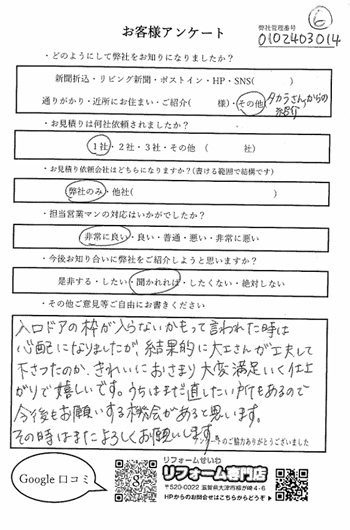 お客様アンケート
弊社管理番号
⑥
0102403014
・どのようにして弊社をお知りになりましたか?
新聞折込・リビング新聞・ポストイン・HP・SNS( )
通りがかり・近所にお住まい・ご紹介( 様)・その他(タカラさんからの紹介
・お見積りは何社依頼されましたか?
1社・2社・3社・その他 ( 社)
・お見積り依頼会社はどちらになりますか?(書ける範囲で結構です)
弊社のみ・他社( )
・担当営業マンの対応はいかがでしたか?
非常に良い・良い・普通・悪い・非常に悪い
・今後お知り合いに弊社をご紹介しようと思いますか?
是非する・したい・聞かれれば・したくない・絶対しない
・その他ご意見等ご自由にお書きください
入口ドアの枠が入らないかもって言われた時は
心配になりましたが、結果的に大工さんが工夫して
下さったのか、きれいにおさまり大変満足いく仕上
がりで嬉しいです。うちはまだ直したい所もあるので
今後もお願いする機会があると思います。
その時はまたよろしくお願いします。
アンケートのご協力ありがとうございました
Google 口コミ
リフォームせいわ
リフォーム専門店
〒520-0022 滋賀県大津市柳が崎4-6
HPからのお問合せはこちらからどうぞ